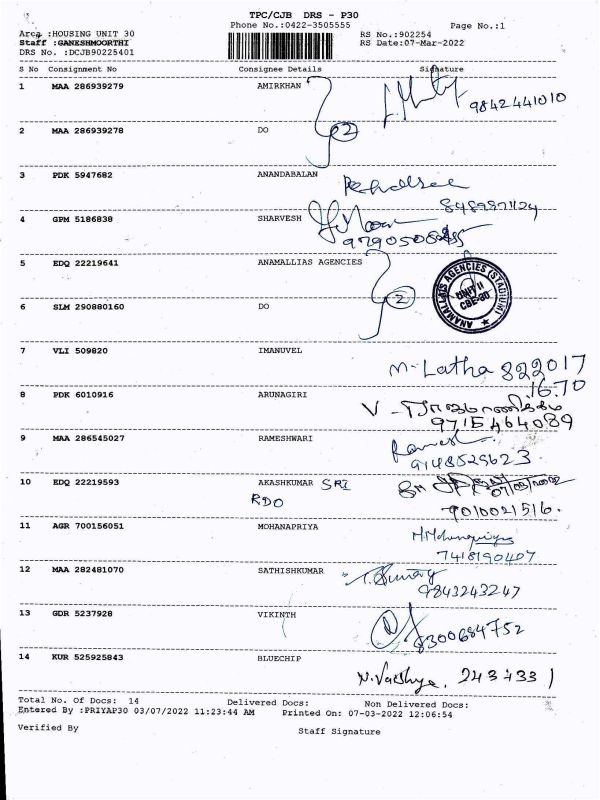 TPC/CJB DRS - P30
Phone No.:0422-3505555 Page No.:1
Area :HOUSING UNIT 30 RS No.:902254
Staff :GANESHMOORTHI RS Date:07-Mar-2022
DRS No. :DCJB90225401
S No Consignment No Consignee Details Signature
1 MAA 286939279 AMIRKHAN 9842441010
2 MAA 286939278 DO 2
3 PDK 5947682 ANANDABALAN
4 GPM 5186838 SHARVESH
5 EDQ 22219641 ANAMALLIAS AGENCIES
ANAMALLAIS AGENCIES (STADIUM) UNIT II CBE-30
6 SLM 290880160 DO 2
7 VLI 509820 IMANUVEL M. Latha 822017
16.70
8 PDK 6010916 ARUNAGIRI
9715464089
9 MAA 286545027 RAMESHWARI Ramesh
9148529623
10 EDQ 22219593 AKASHKUMAR SRI
RDO 9010021516.
11 AGR 700156051 MOHANAPRIYA
7418190407
12 MAA 282481070 SATHISHKUMAR
9843243247
13 GDR 5237928 VIKINTH 8300684752
14 KUR 525925843 BLUECHIP
Total No. Of Docs: 14 Delivered Docs: Non Delivered Docs:
Entered By :PRIYAP30 03/07/2022 11:23:44 AM Printed On: 07-03-2022 12:06:54
Verified By Staff Signature